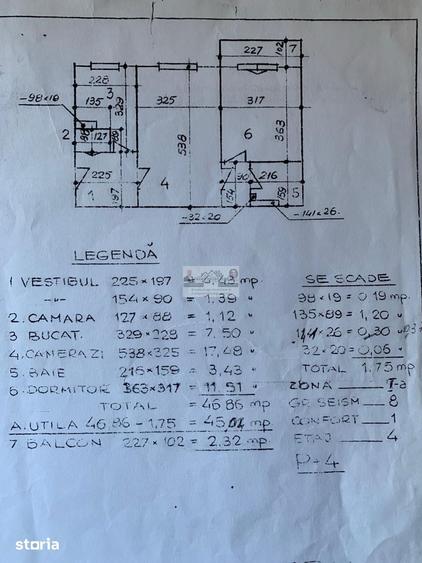 227 102 7
228
98x19
135 3 329 325 317
538 6 363
2 88 127 89
225 90 216
1 197 4 154 159 5
32x20 141x26.
LEGENDĂ
1 VESTIBUL 225x197 = 4,43 mp.
-"- 154x90 = 1,39 "
2. CAMARA 127x88 = 1,12 "
3 BUCAT. 329x228 = 7,50 "
4. CAMERA ZI 538x325 = 17,48 "
5. BAIE 216x159 = 3,43 "
6. DORMITOR 363x317 = 11,51 "
TOTAL = 46 86 mp
A. UTILA 46,86 - 1,75 = 45, mp
7 BALCON 227x102 = 2,32 mp.
SE SCADE
98x19 = 0 19 mp.
135x89 = 1,20 "
141x26 = 0,30 "
32x20 = 0,06 "
TOTAL 1,75 mp
ZONA I-a
GR SEISM 8
CONFORT 1
ETAJ 4
P+4
storia